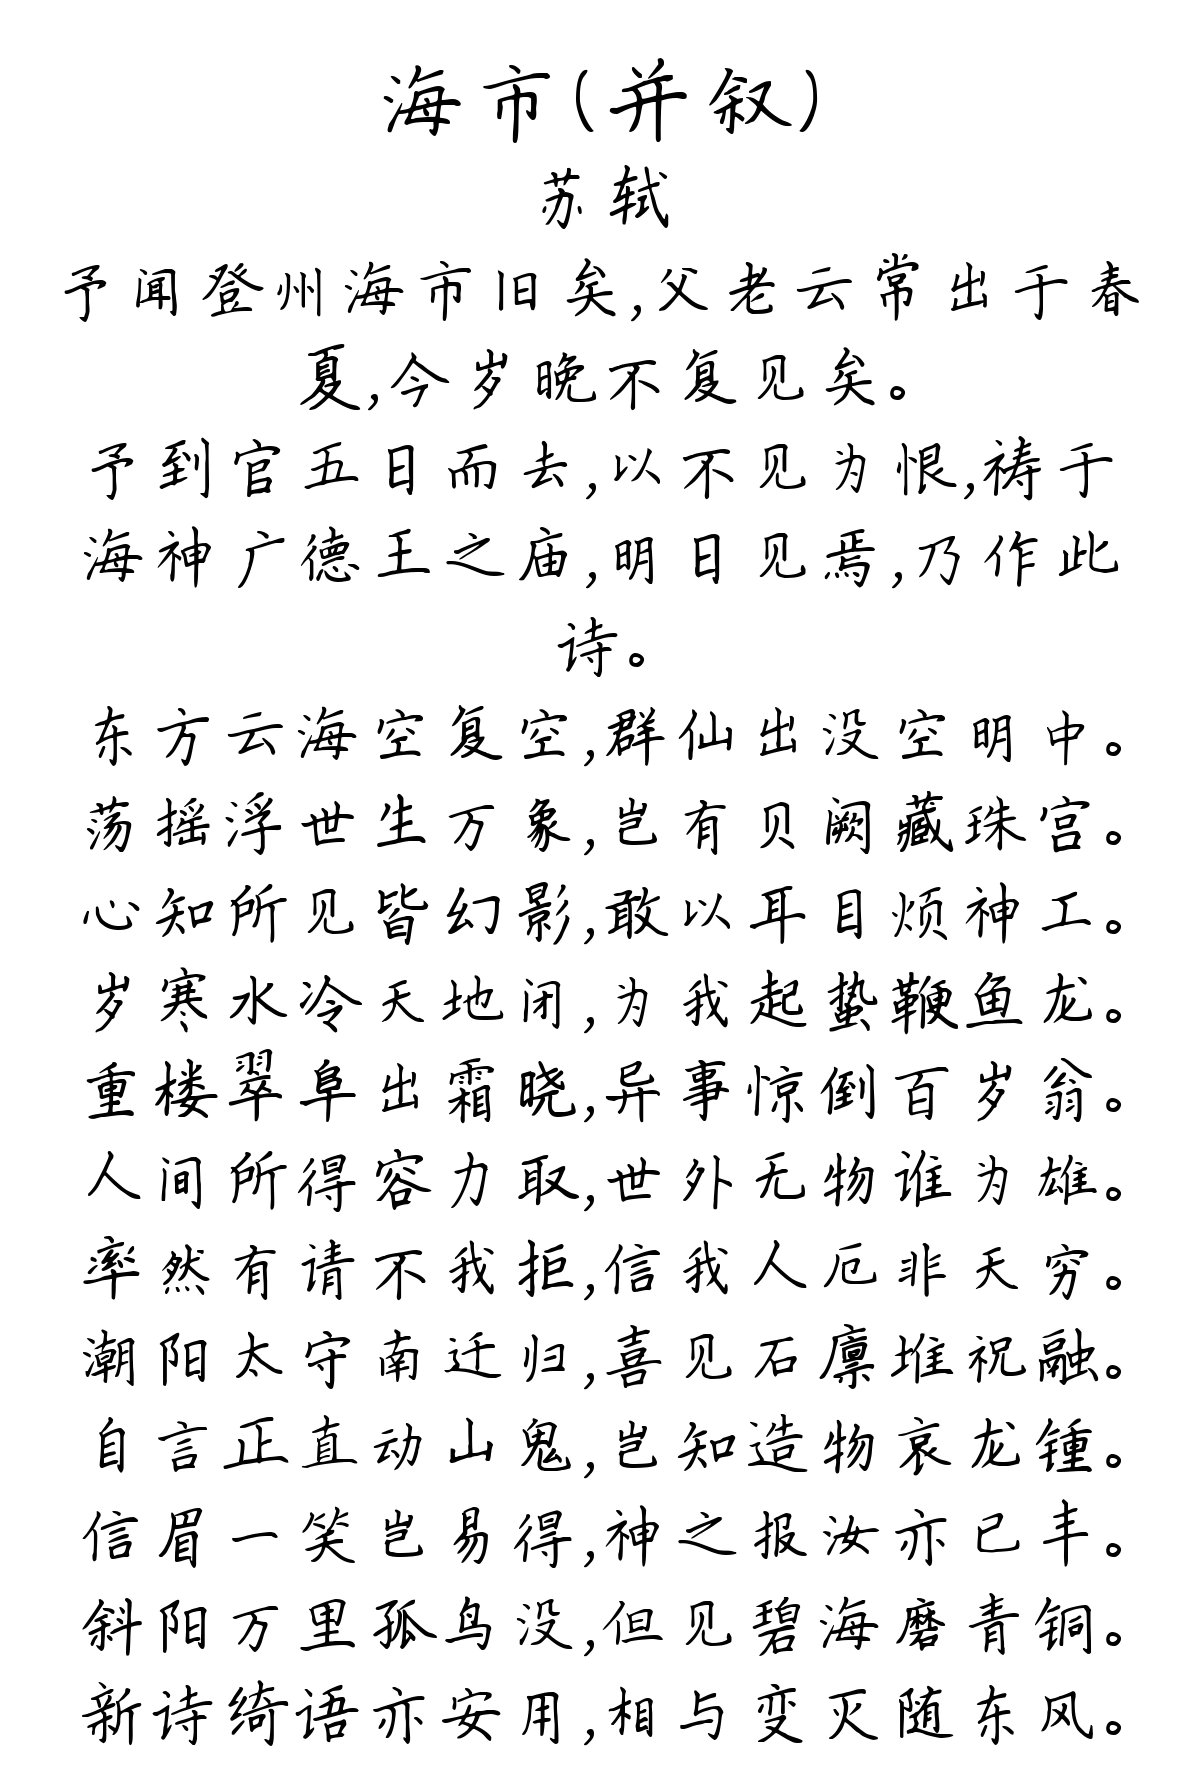 海市(并叙)
苏轼
予闻登州海市旧矣,父老云常出于春
夏,今岁晚不复见矣。
予到官五日而去,以不见为恨,祷于
海神广德王之庙,明日见焉,乃作此
诗。
东方云海空复空,群仙出没空明中。
荡摇浮世生万象,岂有贝阙藏珠宫。
心知所见皆幻影,敢以耳目烦神工。
岁寒水冷天地闭,为我起蛰鞭鱼龙。
重楼翠阜出霜晓,异事惊倒百岁翁。
人间所得容力取,世外无物谁为雄。
率然有请不我拒,信我人厄非天穷。
潮阳太守南迁归,喜见石廪堆祝融。
自言正直动山鬼,岂知造物哀龙锺。
信眉一笑岂易得,神之报汝亦已丰。
斜阳万里孤鸟没,但见碧海磨青铜。
新诗绮语亦安用,相与变灭随东风。